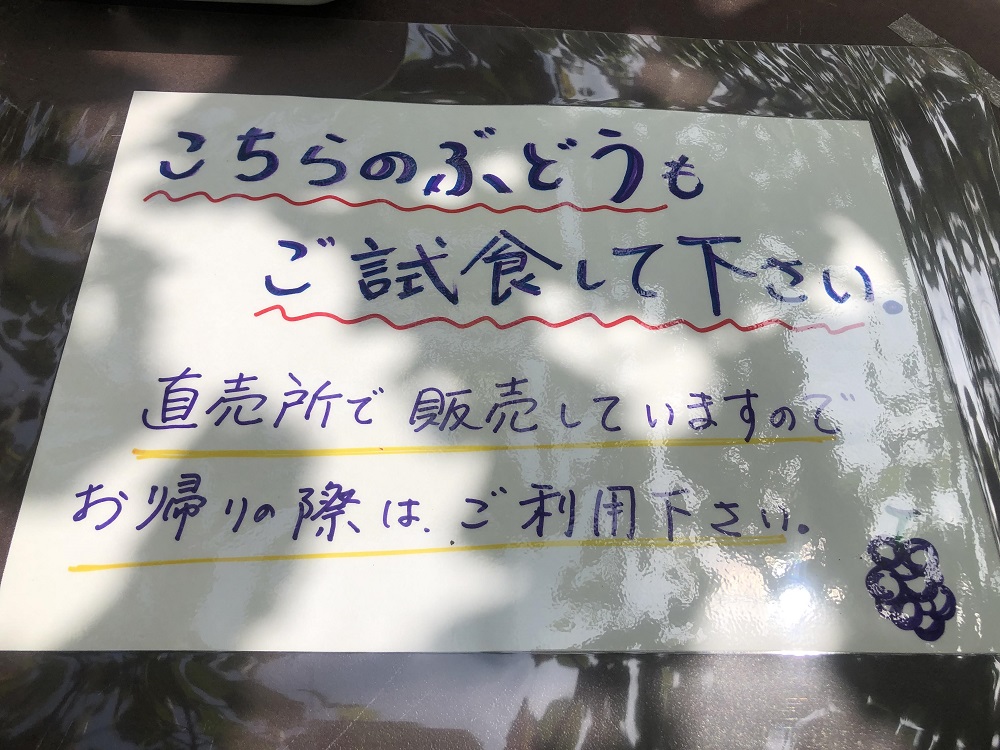 こちらのぶどうも
ご試食して下さい。
直売所で販売していますので
お帰りの際は、ご利用下さい。